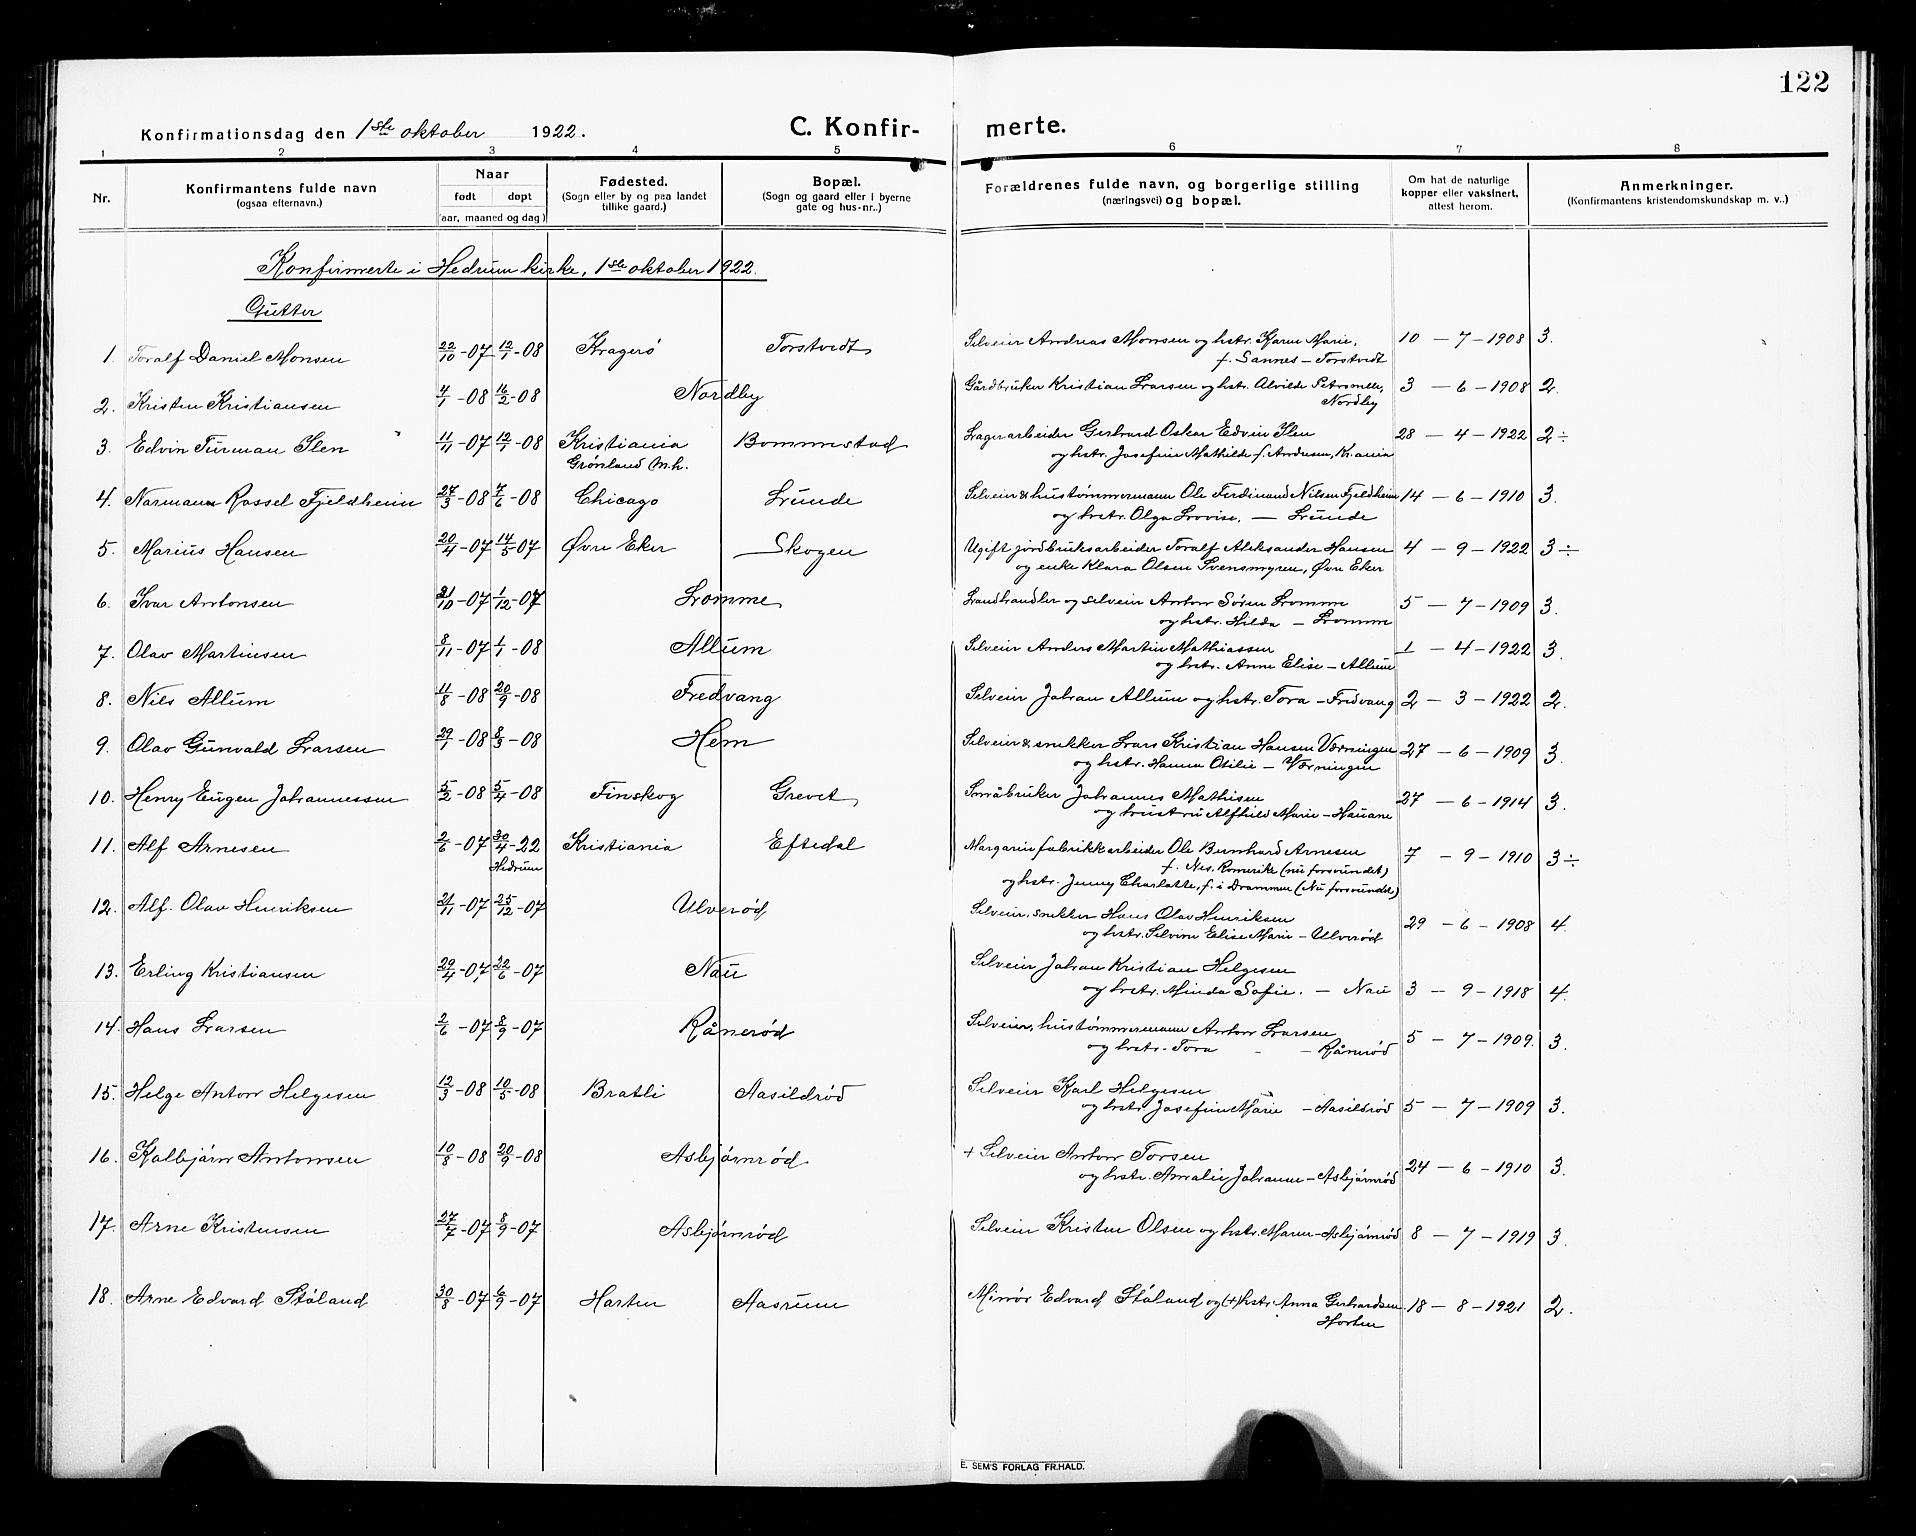 122
Konfirmationsdag den 1ste oktober 1922.
C. Konfir-
merte.
1 2 3 4 5 6 7 8
Nr.
Konfirmantens fulde navn
(ogsaa efternavn.)
Naar
født døpt
(aar, maaned og dag)
Fødested.
(Sogn eller by og paa landet
tillike gaard.)
Bopæl.
(Sogn og gaard eller i byerne
gate og hus-nr..)
Forældrenes fulde navn, og borgerlige stilling
(næringsvei) og bopæl.
Om hat de naturlige
kopper eller vaksinert,
attest herom.
Anmerkninger.
(Konfirmantens kristendomskundskap m. v..)
Konfirmerte i Hedrum kirke, 1ste oktober 1922.
Gutter
1. Toralf Daniel Monsen 22/10-07 12/1-08 Kragerø Torstvedt Selveier Andreas Monsen og hstr. Karen Marie, 10 - 7 - 1908 3.
f. Sannes - Torstvedt
2. Kristen Kristiansen 4/1-08 16/2-08 Nordby Gårdbruker Kristian Larsen og hstr. Alvilde Petronelle, 3 - 6 - 1908 2.
Nordby
3. Edvin Turman Ilen 11/11-07 12/1-08 Kristiania Bommestad Lagerarbeider Gerhard Oskar Edvin Ilen 28 - 4 - 1922 2÷
Grønland m.h. og hstr. Josefine Mathilde f. Andresen, Kr.ania
4. Normann Rossel Fjeldheim 27/3-08 7/6-08 Chicago Lunde Selveier & hustømmermann Ole Ferdinand Nilsen Fjeldheim 14 - 6 - 1910 3.
og hstr. Olga Lovise. - Lunde
5. Marius Hansen 20/4-07 14/5-07 Øvre Eker Skogen Ugift jordbruksarbeider Toralf Aleksander Hansen 4 - 9 - 1922 3÷
og enke Klara Olsen Svensmyren, Øvre Eker
6. Ivar Antonsen 21/10-07 1/12-07 Lomme Landhandler og selveier Anton Søren Lomme 5 - 7 - 1909 3.
og hstr. Hilda - Lomme
7. Olav Martinsen 8/11-07 1/1-08 Allum Selveier Anders Martin Mathiassen 1 - 4 - 1922 3.
og hstr. Anne Elise - Allum
8. Nils Allum 11/8-08 20/9-08 Fredvang Selveier Johan Allum og hstr. Tora - Fredvang 2 - 3 - 1922 2.
9. Olav Gunvald Larsen 29/1-08 8/3-08 Hem Selveier & snekker Lars Kristian Hansen Værningen 27 - 6 - 1909 3.
og hstr. Hanna Otilie - Værningen
10. Henry Eugen Johannessen 5/2-08 5/4-08 Finskog Grevet Småbruker Johannes Mathisen 27 - 6 - 1914 3.
og hustru Alfhild Marie - Hauane
11. Alf Arnesen 2/6-07 30/4-22 Kristiania Eftedal Margarinfabrikkarbeider Ole Bernhard Arnesen 7 - 9 - 1910 3÷
Hedrum f. Nes, Romerike (nu forsvundet)
og hstr. Jenny Charlotte, f. i Drammen (Nu forsvundet)
12. Alf Olav Henriksen 21/11-07 25/12-07 Ulverød Selveier, snekker Hans Olav Henriksen 29 - 6 - 1908 4.
og hstr. Selvine Elise Marie - Ulverød
13. Erling Kristiansen 29/4-07 22/6-07 Nau Selveier Johan Kristian Helgesen
og hstr. Minda Sofie. - Nau 3 - 9 - 1918 4.
14. Hans Larsen 2/6-07 8/9-07 Rånerød Selveier, hustømmermann Anton Larsen 5 - 7 - 1909. 3.
og hstr. Tora - - Rånerød
15. Helge Anton Helgesen 12/3-08 10/5-08 Bratli Aasildrød Selveier Karl Helgesen
og hstr. Josefine Marie - Aasildrød 5 - 7 - 1909 3.
16. Kolbjørn Antonsen 10/8-08 20/9-08 Asbjørnrød + Selveier Anton Torsen 24 - 6 - 1910 3.
og hstr. Amalie Johanne - Asbjørnrød
17. Arne Kristensen 27/7-07 8/9-07 Asbjørnrød Selveier Kristen Olsen og hstr. Maren - Asbjørnrød 8 - 7 - 1919 3.
18. Arne Edvard Støland 30/8-07 6/9-07 Horten Aasrum Minør Edvard Støland og (+) hstr. Anna Gerhardsen 18 - 8 - 1921 2.
Horten
E. SEM'S FORLAG FR.HALD.